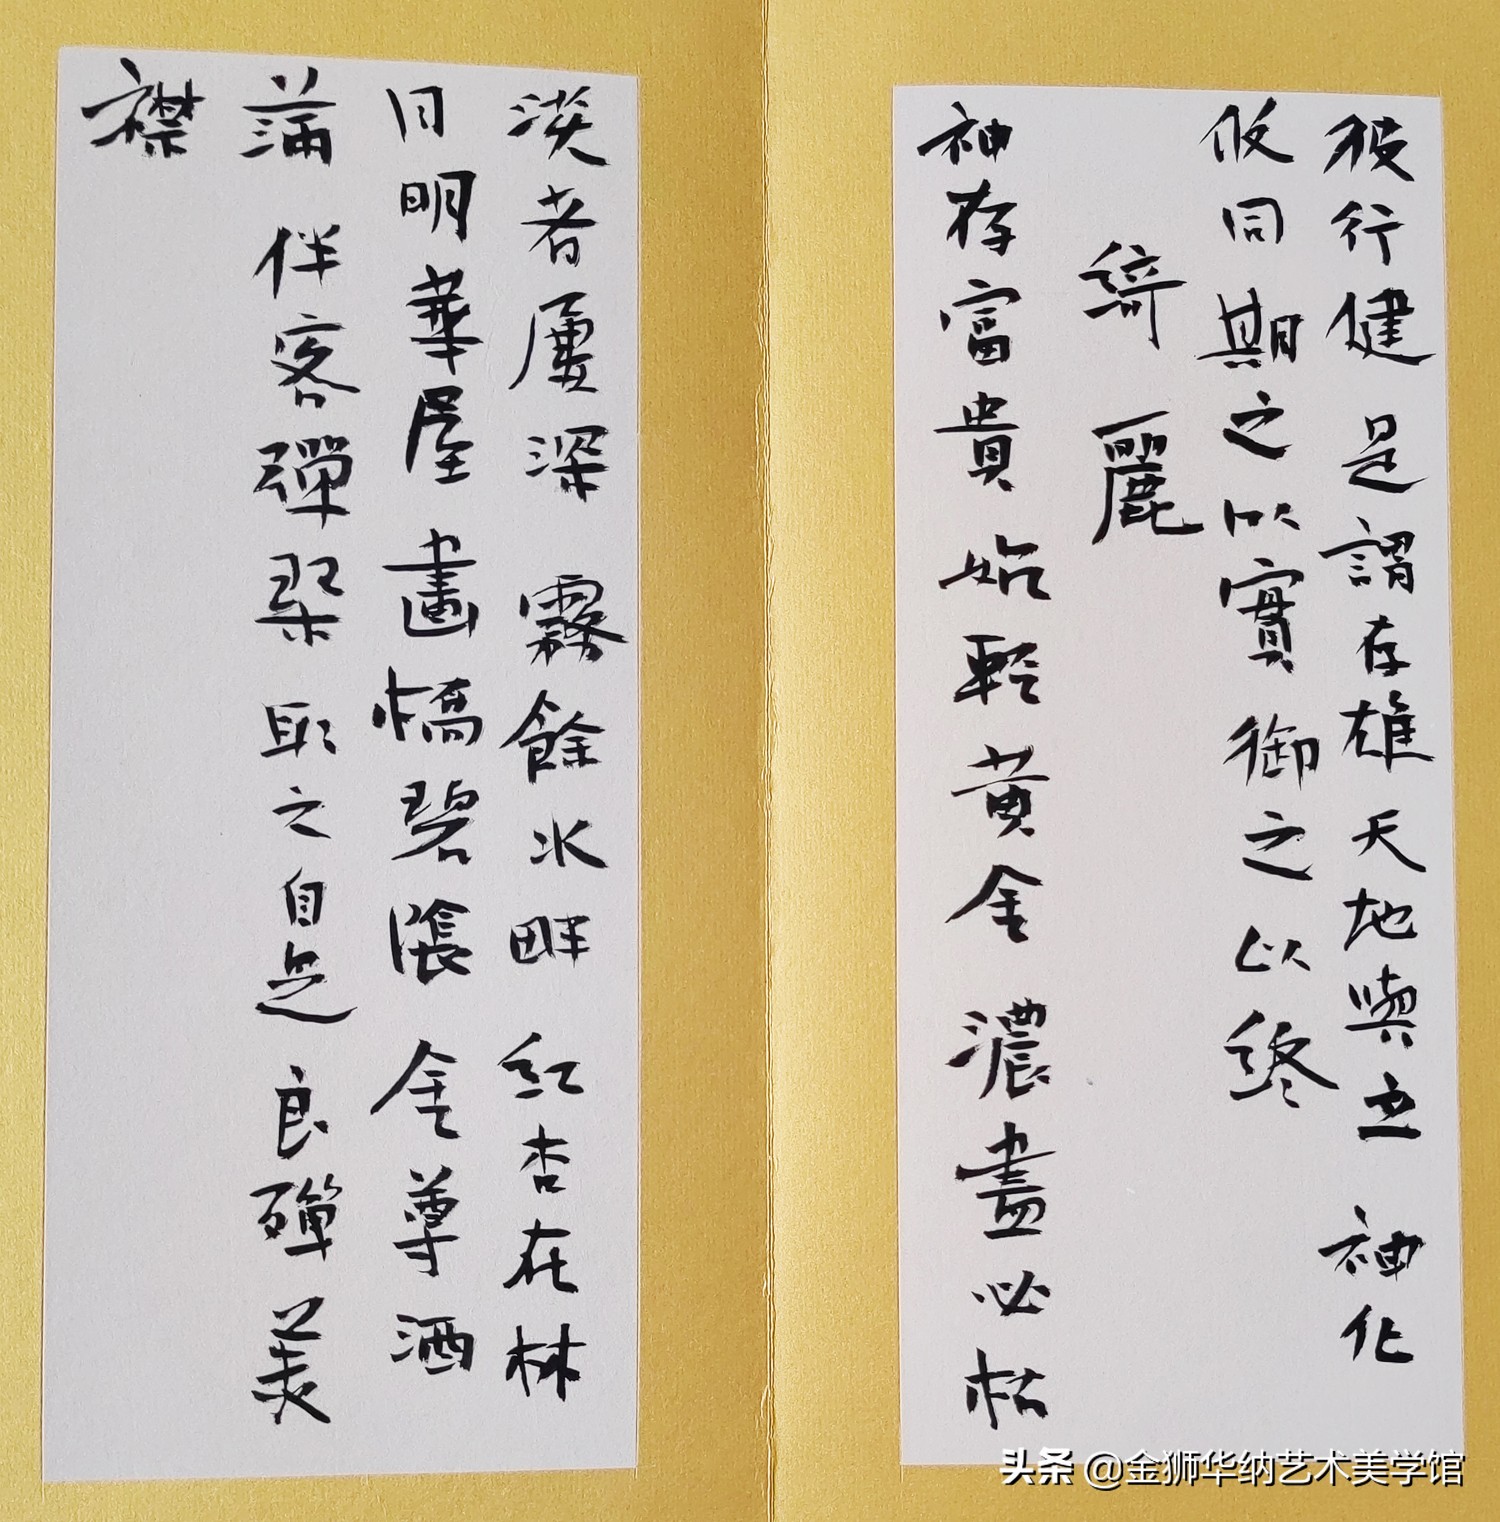 彼行健是謂存雄天地與立神化
攸同期之以實御之以終
綺麗
神存富貴始輕黃金濃盡必枯
淡者屢深霧餘水畔紅杏在林
月明華屋畫橋碧陰金尊酒
滿伴客彈琴取之自足良殫美
襟
头条 @金狮华纳艺术美学馆